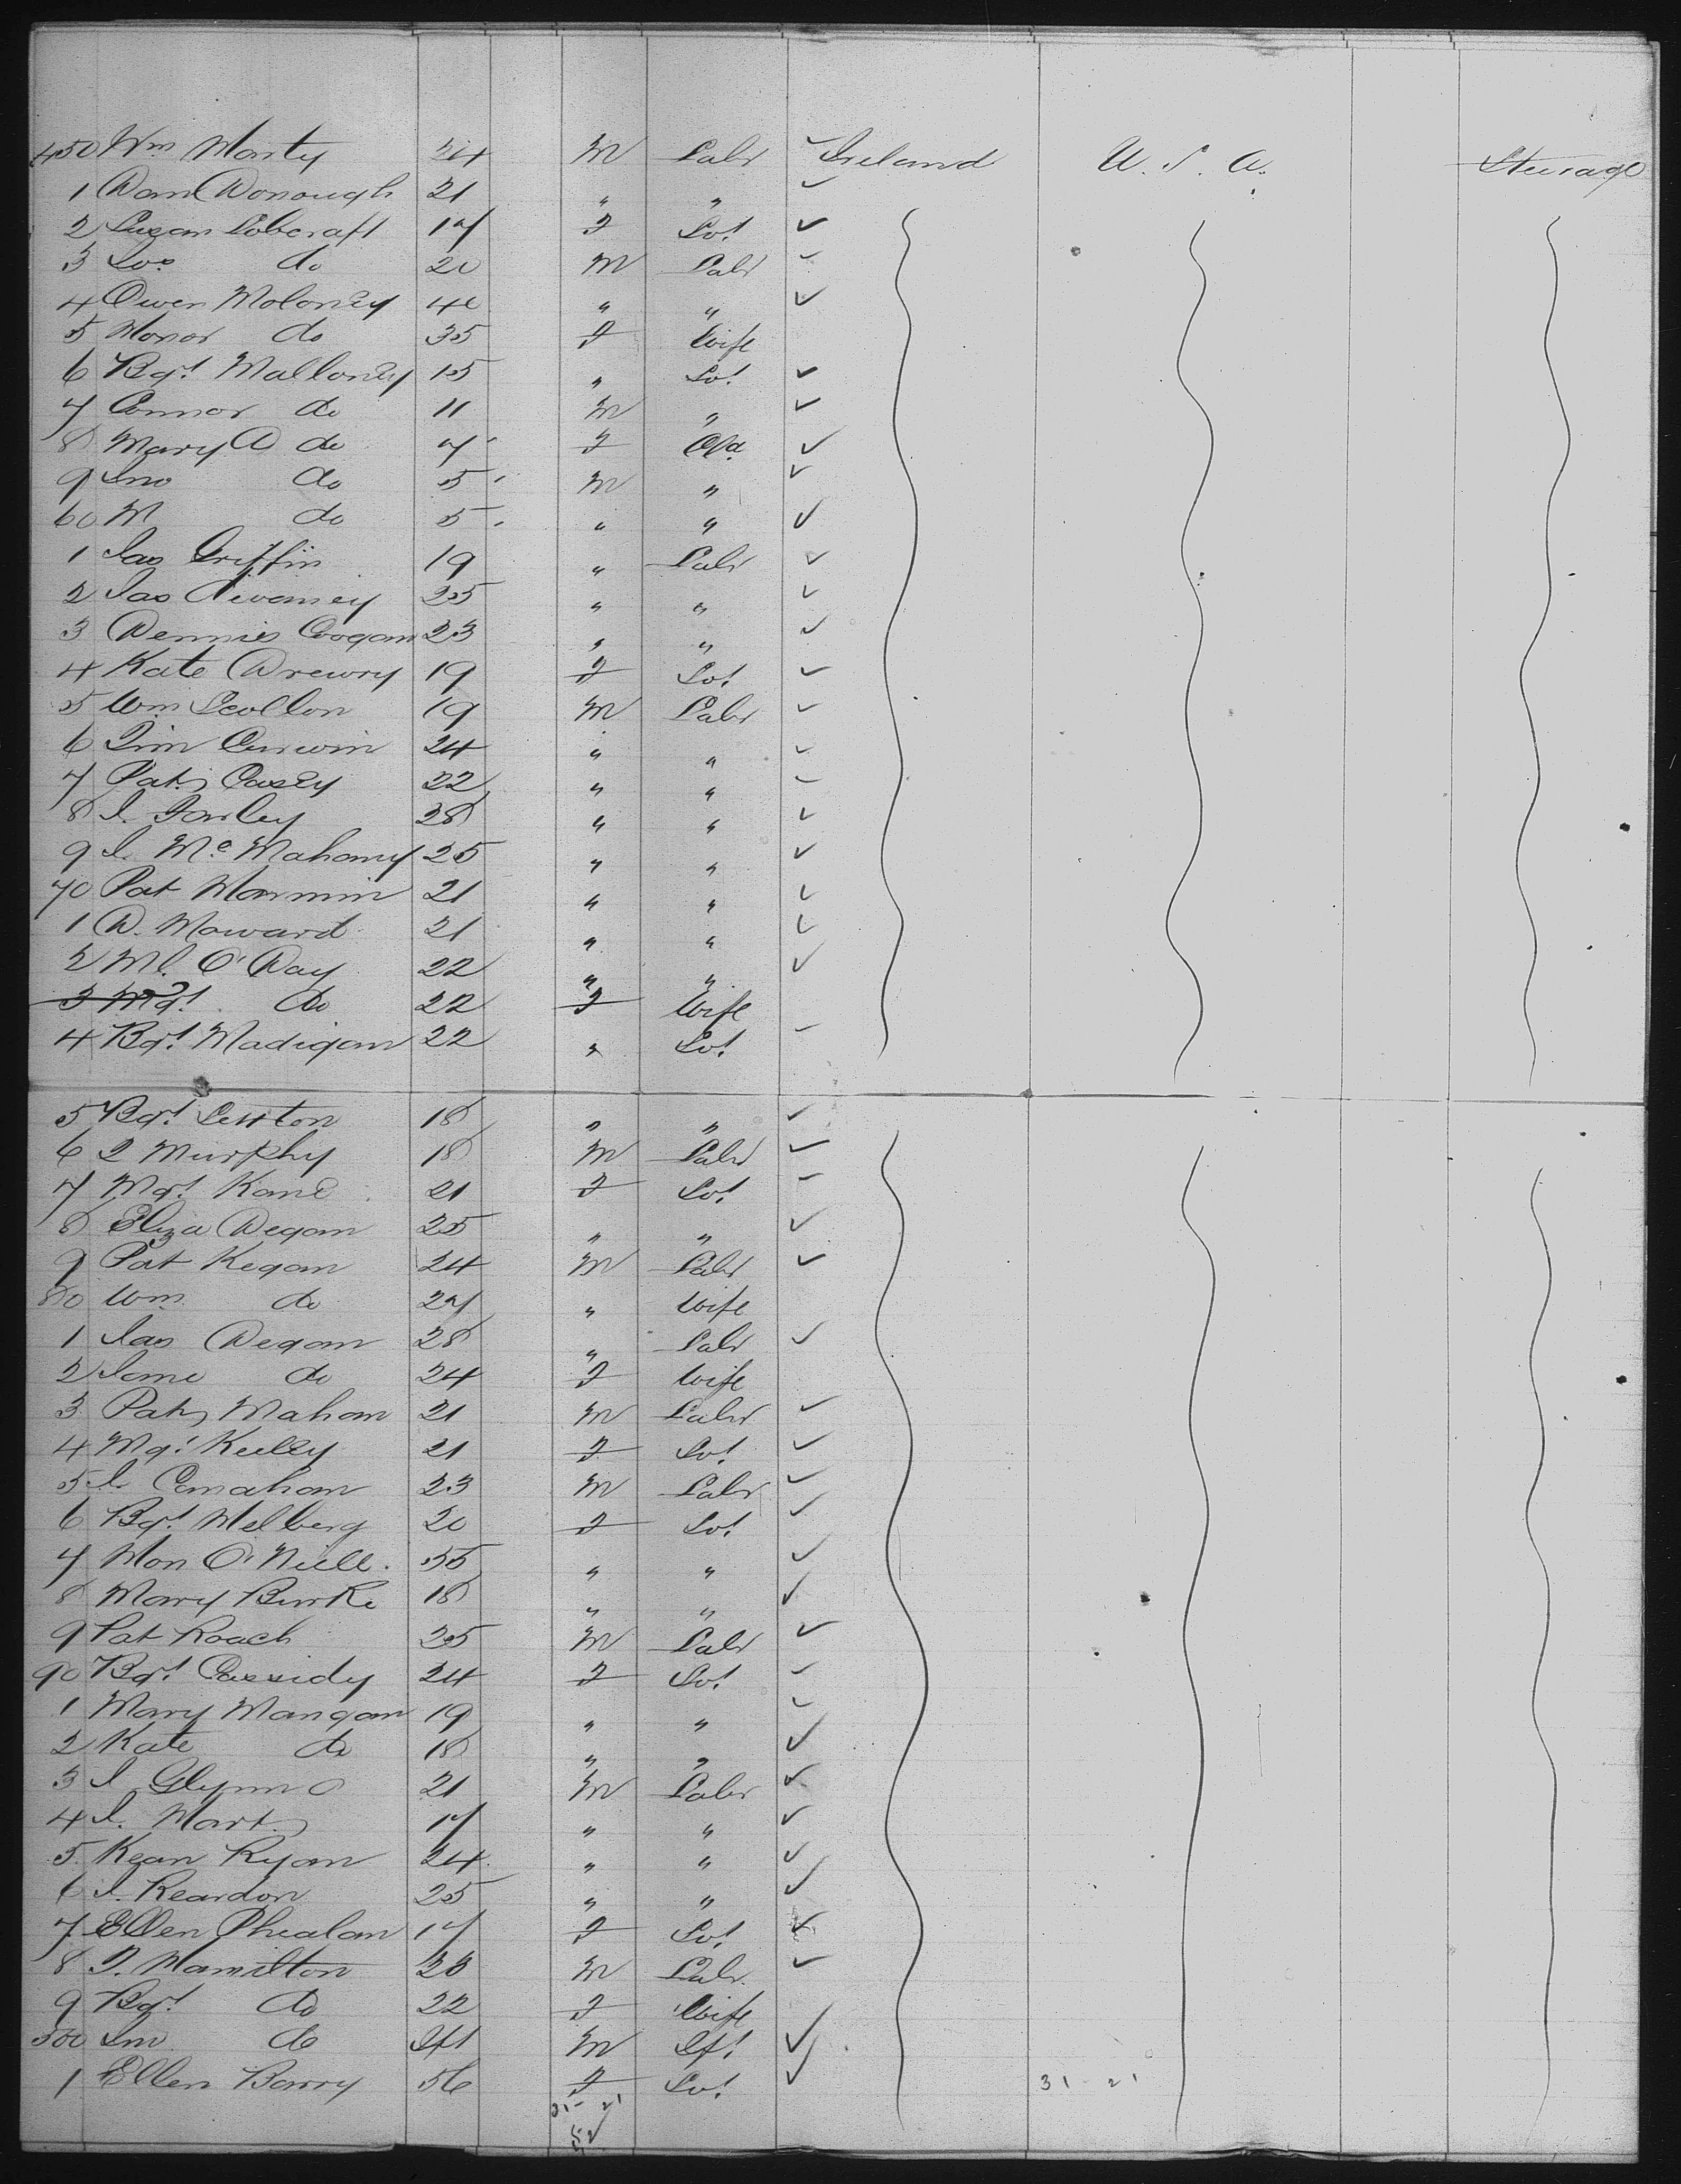 450 Wm Harty 24 M Labr Ireland U.S.A. Steerage
1 Danl Donough 21 " "
2 Susan Lobcraft 17 F Svt
3 Jos do 20 M Labr
4 Owen Moloney 40 " "
5 Honor do 35 F Wife
6 Bgt Malloney 15 " Svt
7 Connor do 11 M "
8 Mary A do 7 F Chd
9 Jno do 5 M "
60 M do 5 " "
1 Jas Griffin 19 " Labr
2 Jas 25 " "
3 Dennis Coogan 23 " "
4 Kate Drewry 19 F Svt
5 Wm Scollon 19 M Labr
6 Tim Curwin 24 " "
7 Patk Casey 22 " "
8 J. Farley 28 " "
9 J. Mc Mahony 25 " "
70 Pat Hannin 21 " "
1 D. Howard 21 " "
2 Ml. O'Day 22 " "
3 Mgt do 22 F Wife
4 Bgt Madigan 22 " Svt
5 Bgt Sexton 18 " "
6 T Murphy 18 M Labr
7 Mgt Kane 21 F Svt
8 Eliza Degan 25 " "
9 Pat Kegan 24 M Labr
80 Wm do 27 " Wife
1 Jas Degan 28 " Labr
2 Jane do 24 F Wife
3 Patk Mahon 21 M Labr
4 Mgt Keiley 21 F Svt
5 J. Canahan 23 M Labr
6 Bgt Helberg 20 F Svt
7 Hon O'Niell " "
8 Mary Burke 18 " "
9 Pat Roach 25 M Labr
90 Bgt Cassidy 24 F Svt
1 Mary Mangan 19 " "
2 Kate do 18 " "
3 J. Glynn 21 M Labr
4 J. Hart 17 " "
5 Kean Ryan 24 " "
6 J. Reardon 25 " "
7 Ellen Phealan 17 F Svt
8 T. Hamilton 23 M Labr
9 Bgt do 22 F Wife
500 Jno do Ift M Ift
1 Ellen Barry 56 F Svt
31 - 21 31 - 21
52